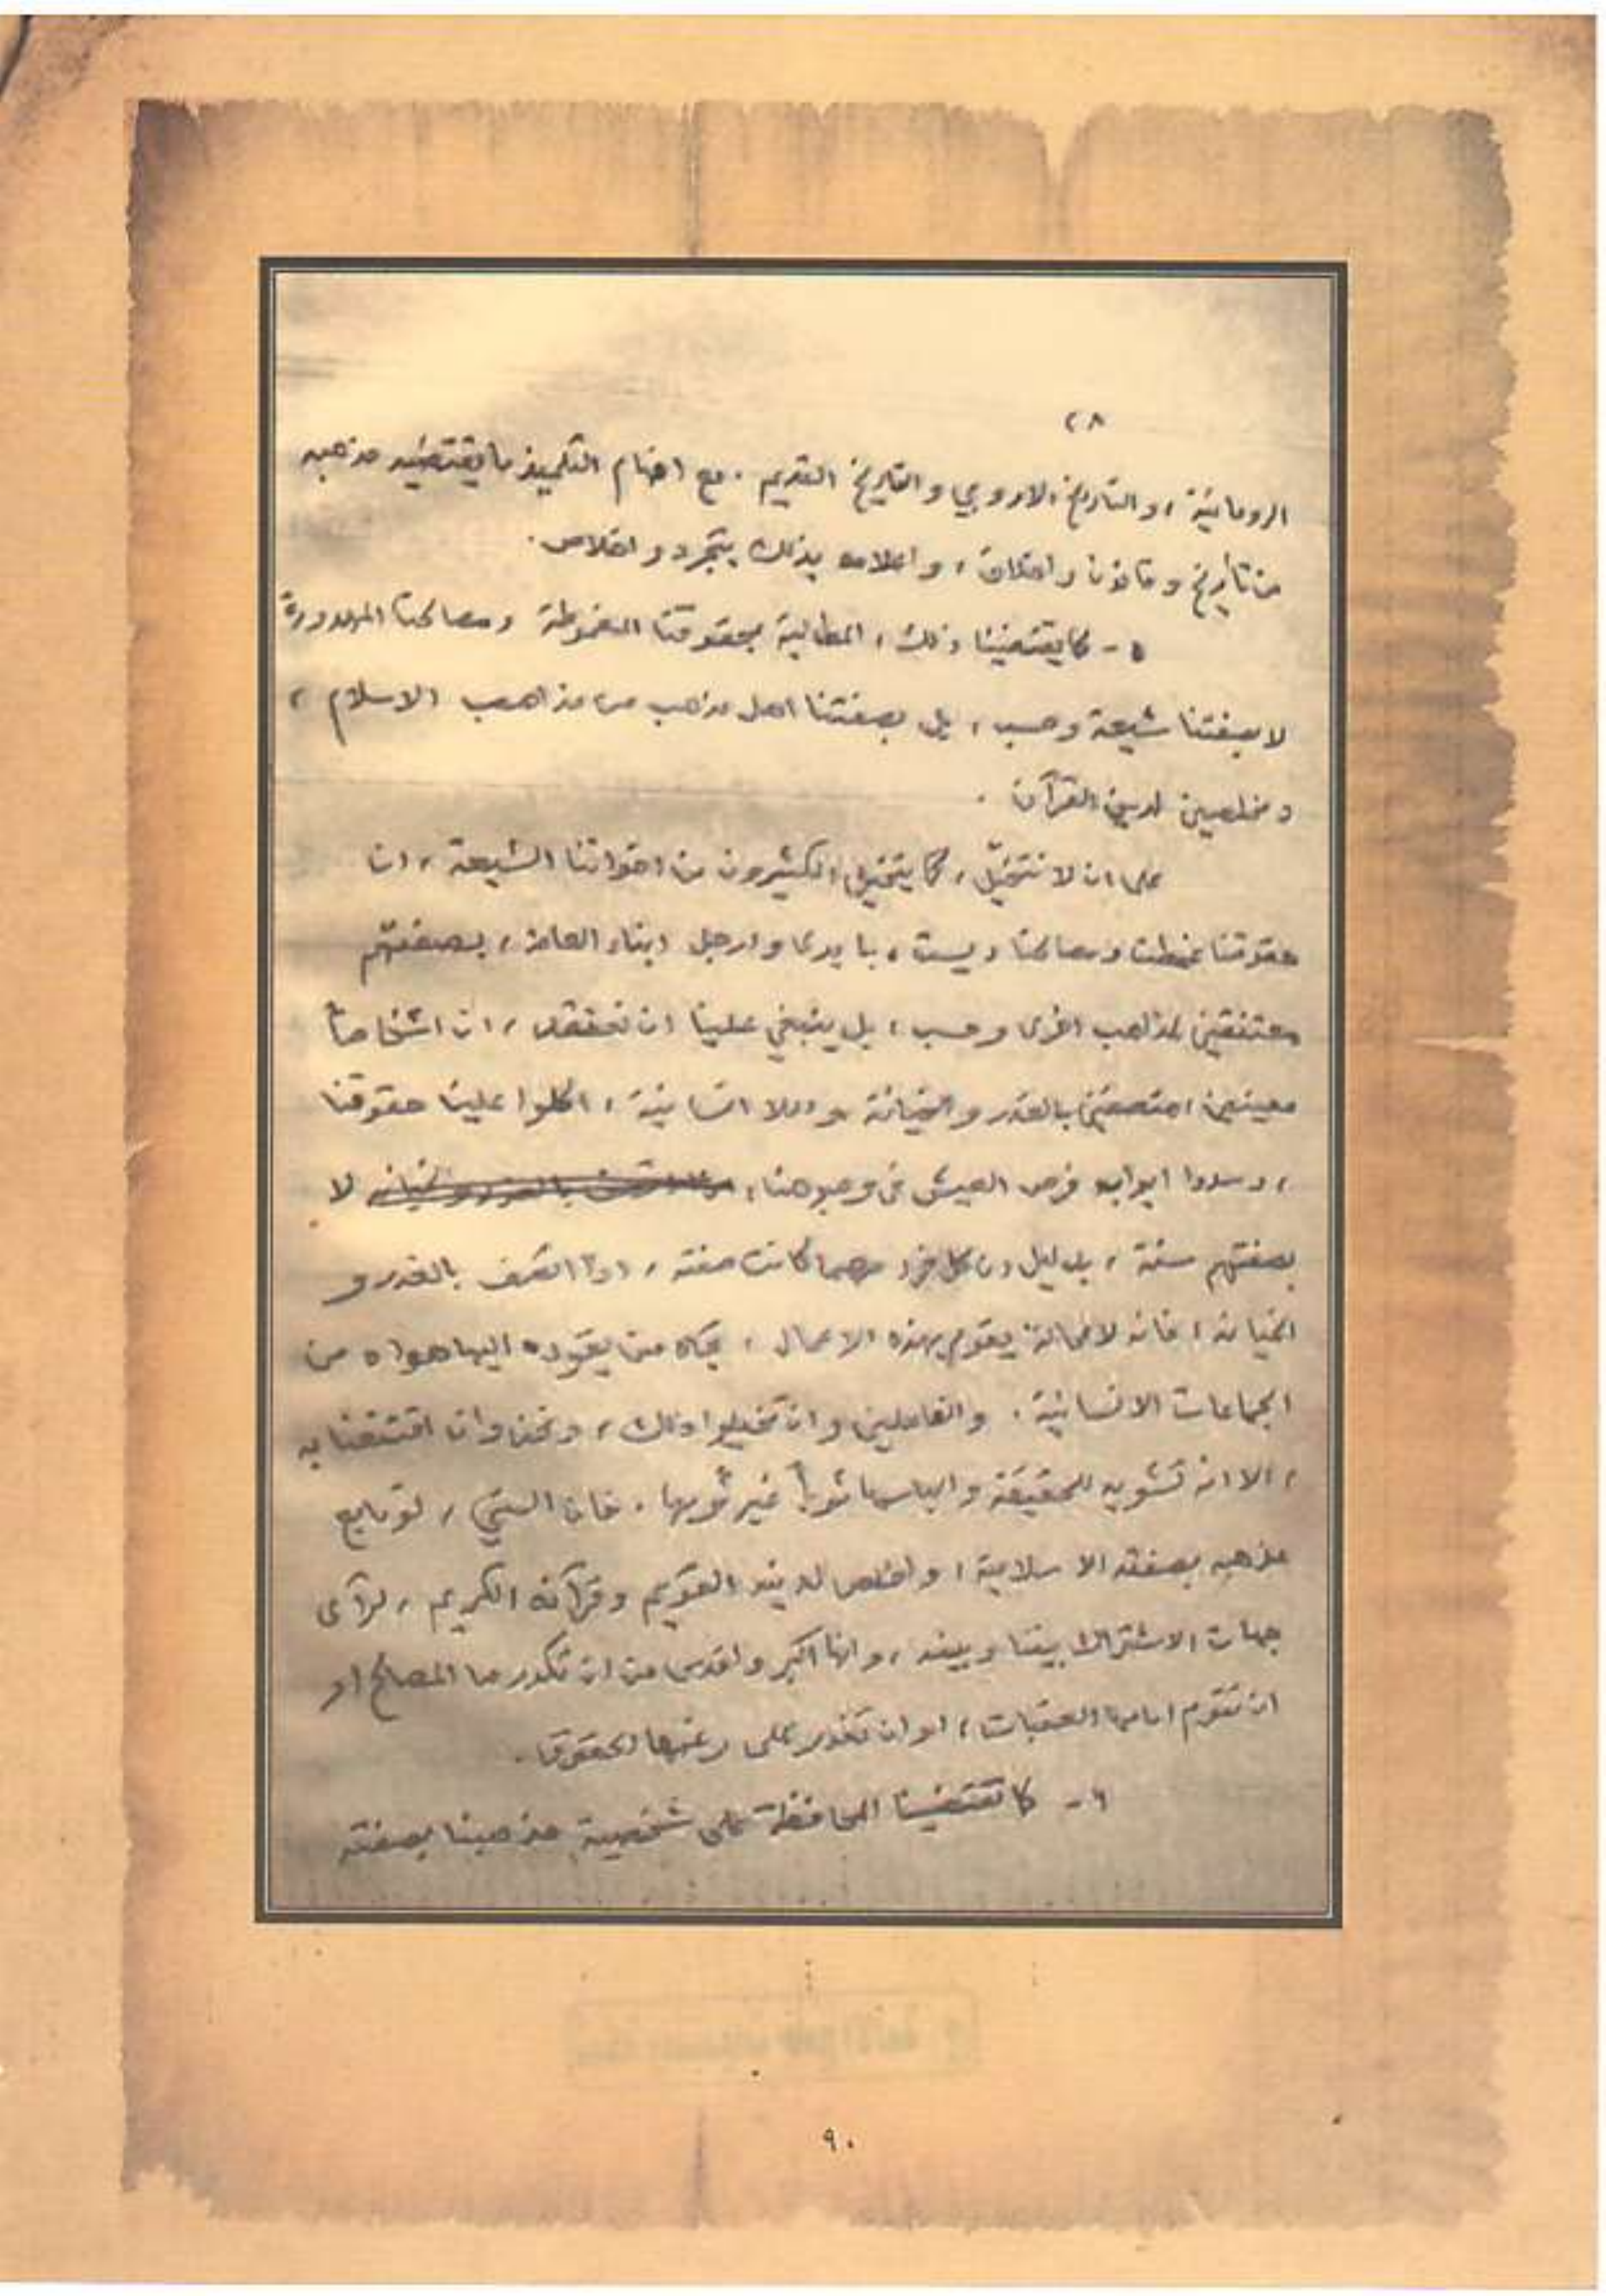 ٢٨
الرومانية، والتاريخ الاوروبي والتاريخ القديم. مع افهام التلميذ ما يقتضيه مذهبه
من تأريخ وقانون واخلاق، واعلامه بذلك بتجرد واخلاص.
٥ - كما يقتضينا ذلك، المطالبة بحقوقنا المغموطة ومصالحنا المهدورة
لا بصفتنا شيعة وحسب، بل بصفتنا اهل مذهب من مذاهب الاسلام،
ومخلصين لدين القرآن.
على ان لا نتخيّل، كما يتخيل الكثيرون من اخواننا الشيعة، ان
حقوقنا غمطت ومصالحنا ديست، بايدى وارجل ابناء العامة، بصفتهم
معتنقين لمذاهب اخرى وحسب، بل ينبغي علينا ان نعتقد، ان اشخاصاً
معينين متصفين بالغدر والخيانة واللا انسانية، اكلوا علينا حقوقنا
، وسدوا ابواب فرص العيش في وجوهنا، لا
بصفتهم سنة، بدليل ان كل فرد مهما كانت صفته، اذا اتصف بالغدر و
الخيانة، فانه لا محالة يقوم بهذه الاعمال، تجاه من يقوده اليها هواه من
الجماعات الانسانية. والفاعلين وان تخيلوا ذلك، ونحن وان اقتنعنا به
، الا انه تشويه للحقيقة والباسها ثوباً غير ثوبها. فان السني، لو تابع
مذهبه بصفته الاسلامية، واخلص لدينه القويم وقرآنه الكريم، لرآى
جهات الاشتراك بيننا وبينه، وانها اكبر واقدس من ان تكدرها المصالح او
ان تقوم امامها العقبات، او ان تغدر على رغمها الحقوق.
٦ - كما تقتضينا المحافظة على شخصية مذهبنا بصفته
٩٠